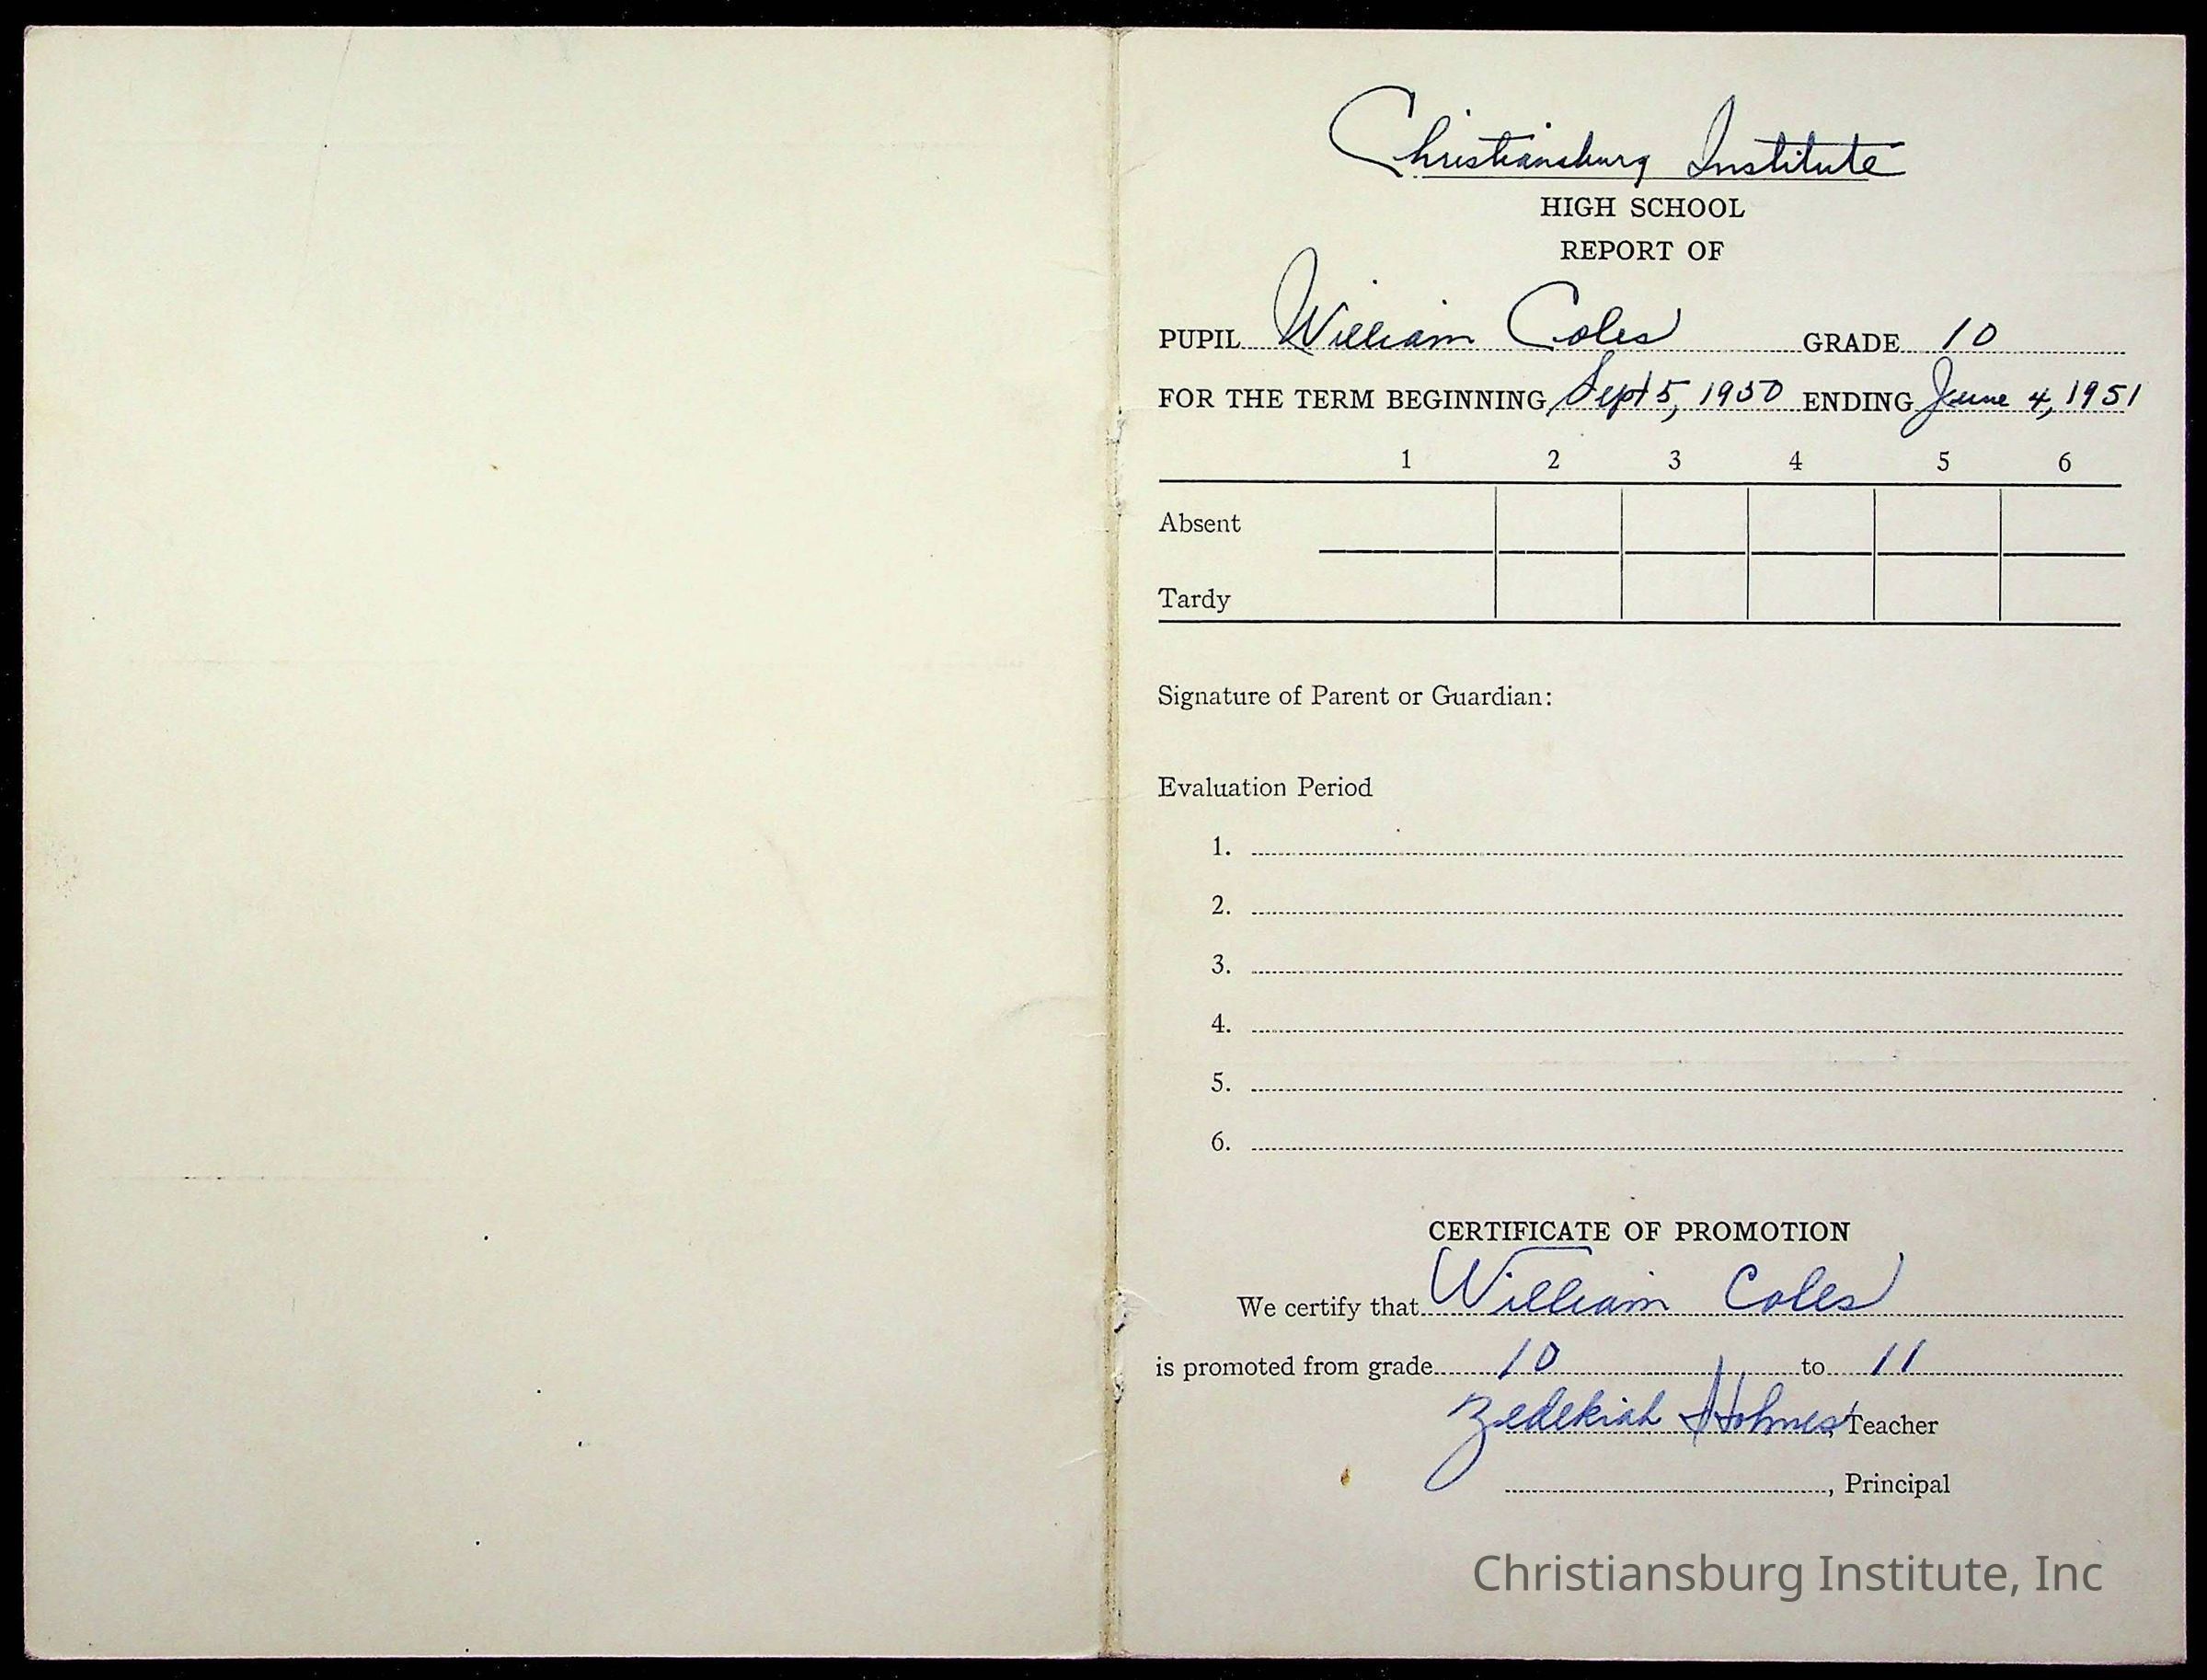 Christiansburg Institute
HIGH SCHOOL
REPORT OF
PUPIL William Coles GRADE 10
FOR THE TERM BEGINNING Sept 5, 1950 ENDING June 4, 1951
1 2 3 4 5 6
Absent
Tardy
Signature of Parent or Guardian:
Evaluation Period
1.
2.
3.
4.
5.
6.
CERTIFICATE OF PROMOTION
We certify that William Coles
is promoted from grade 10 to 11
Zedekiah Holmes, Teacher
, Principal
Christiansburg Institute, Inc